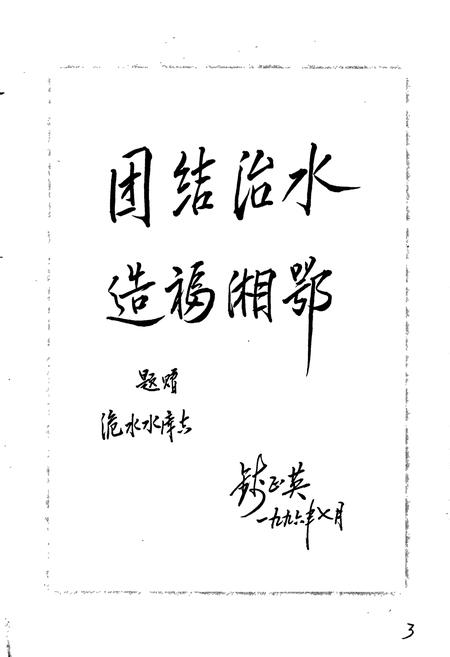 团结治水
造福湘鄂
题赠
洈水水库志
钱正英
一九九六年七月
3